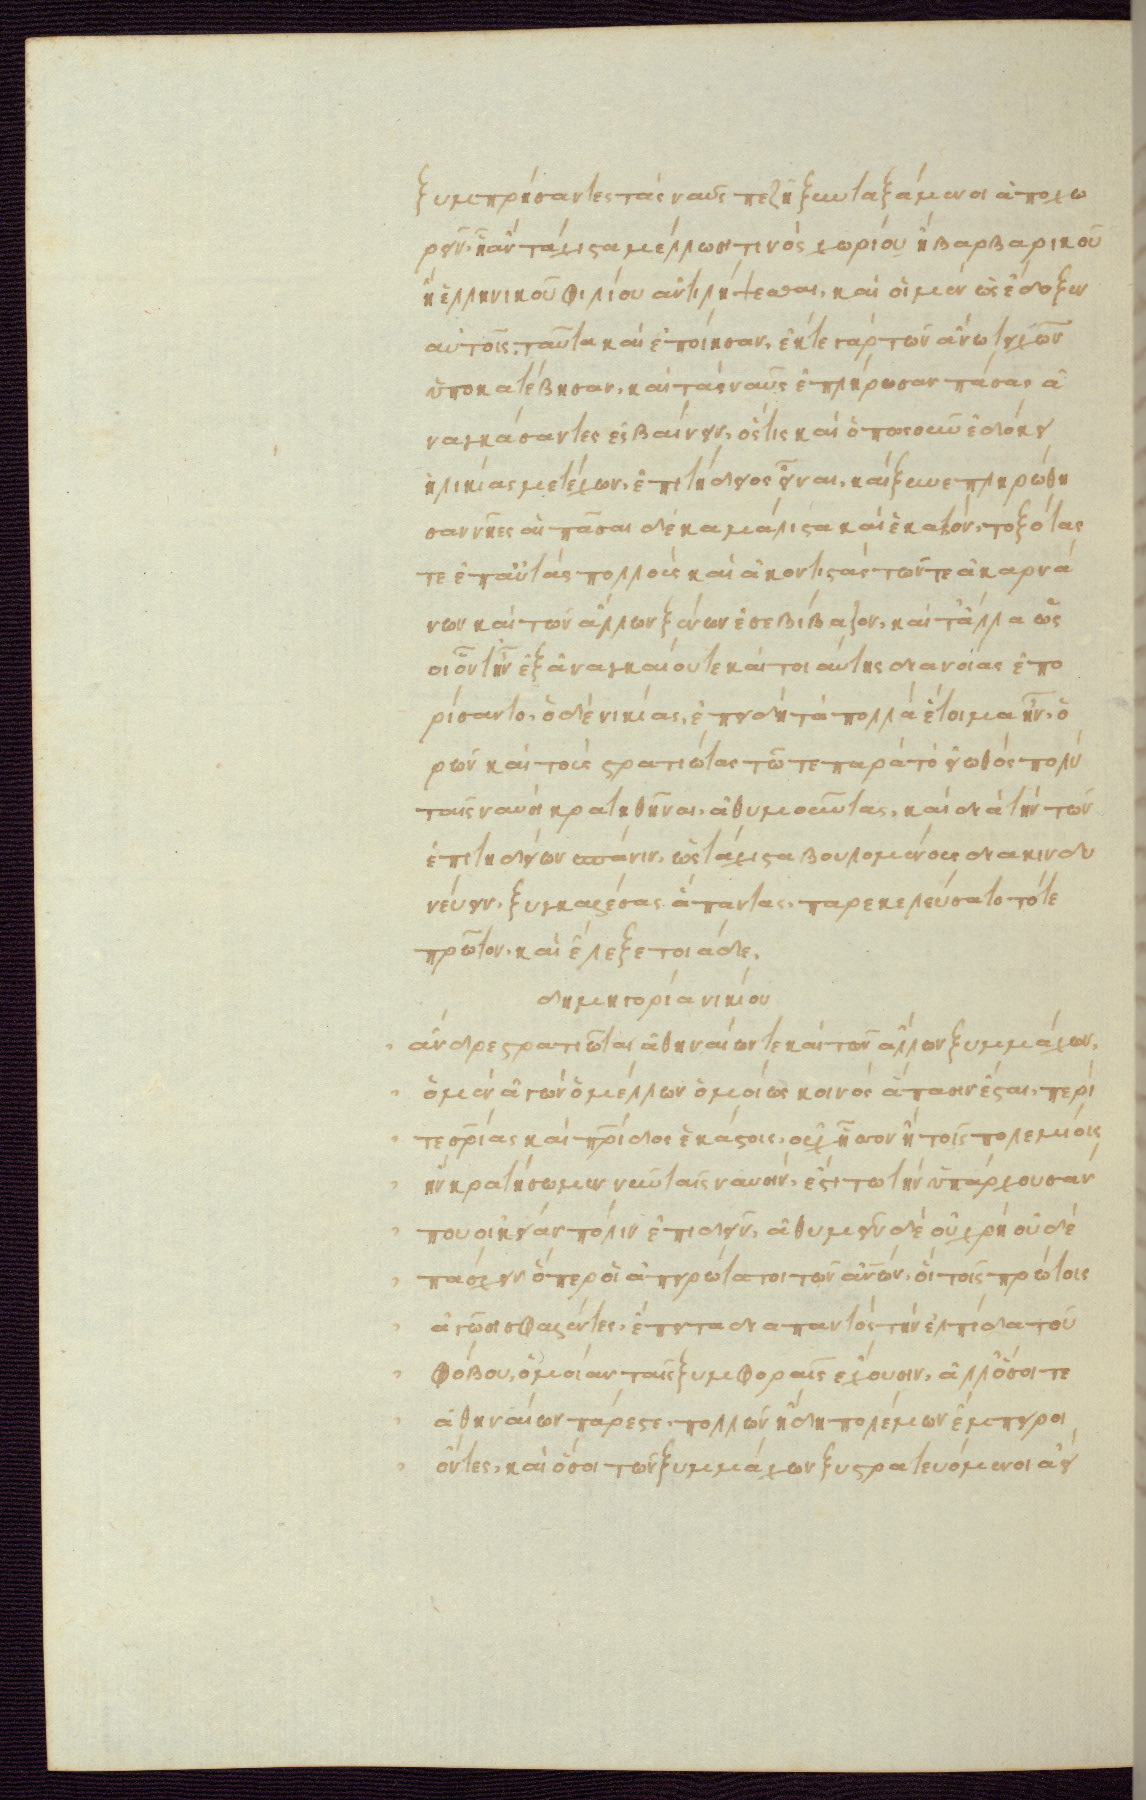 ξυμπρήσαντες τὰς ναῦς πεζῆ ξυνταξάμενοι ἀποχω
ρεῖν, ἧ ἂν τάχιστα μέλλωσι τινὸς χωρίου ἢ βαρβαρικοῦ
ἢ ἑλληνικοῦ φιλίου ἀντιλήψεσθαι, καὶ οἱ μὲν ὡς ἔδοξεν
αὐτοῖς ταῦτα καὶ ἐποίησαν, ἔκ τε γὰρ τῶν ἄνω τειχῶν
ὑποκατέβησαν, καὶ τὰς ναῦς ἐπλήρωσαν πάσας ἀ
ναγκάσαντες εἰσβαίνειν, ὅστις καὶ ὁπωσοῦν ἐδόκει
ἡλικίας μετέχων, ἐπιτήδειος εἶναι, καὶ ξυνεπληρώθη
σαν νῆες αἱ πᾶσαι δέκα μάλιστα καὶ ἑκατόν, τοξότας
τε ἐπ' αὐτὰς πολλοὺς καὶ ἀκοντιστὰς τῶν τε ἀκαρνά
νων καὶ τῶν ἄλλων ξένων ἐσεβίβαζον, καὶ τἄλλα ὡς
οἷόν τ' ἦν ἐξ ἀναγκαίου τε καὶ τοιαύτης διανοίας ἐπο
ρίσαντο, ὁ δὲ νικίας, ἐπειδὴ τὰ πολλὰ ἕτοιμα ἦν, ὁ
ρῶν καὶ τοὺς στρατιώτας τῶ τε παρὰ τὸ εἰωθὸς πολὺ
ταῖς ναυσὶ κρατηθῆναι, ἀθυμοῦντας, καὶ διὰ τὴν τῶν
ἐπιτηδείων σπάνιν, ὡς τάχιστα βουλομένους διακινδυ
νεύειν, ξυγκαλέσας ἅπαντας, παρεκελεύσατο τότε
πρῶτον, καὶ ἔλεξε τοιάδε,
δημηγορία νικίου
ἄνδρες στρατιῶται ἀθηναίων τε καὶ τῶν ἄλλων ξυμμάχων,
ὁ μὲν ἀγὼν ὁ μέλλων ὁμοίως κοινὸς ἅπασιν ἔσται, περί
τε σρίας καὶ πρίδος ἑκάστοις, οὐχ ἧσσον ἢ τοῖς πολεμίοις
ἢν κρατήσωμεν νῦν ταῖς ναυσίν, ἔστι τω τὴν ὑπάρχουσάν
που οἰκείαν πόλιν ἐπιδεῖν, ἀθυμεῖν δὲ οὐ χρὴ οὐδὲ
πάσχειν ὅπερ οἱ ἀπειρότατοι τῶν ἀνων, οἳ τοῖς πρώτοις
ἀγῶσι σφαλέντες, ἔπειτα διαπαντὸς τὴν ἐλπίδα τοῦ
φόβου, ὁμοίαν ταῖς ξυμφοραῖς ἔχουσιν, ἀλλ' ὅσοι τε
ἀθηναίων πάρεστε, πολλῶν ἤδη πολέμων ἔμπειροι
ὄντες, καὶ ὅσοι τῶν ξυμμάχων ξυστρατευόμενοι ἀεὶ